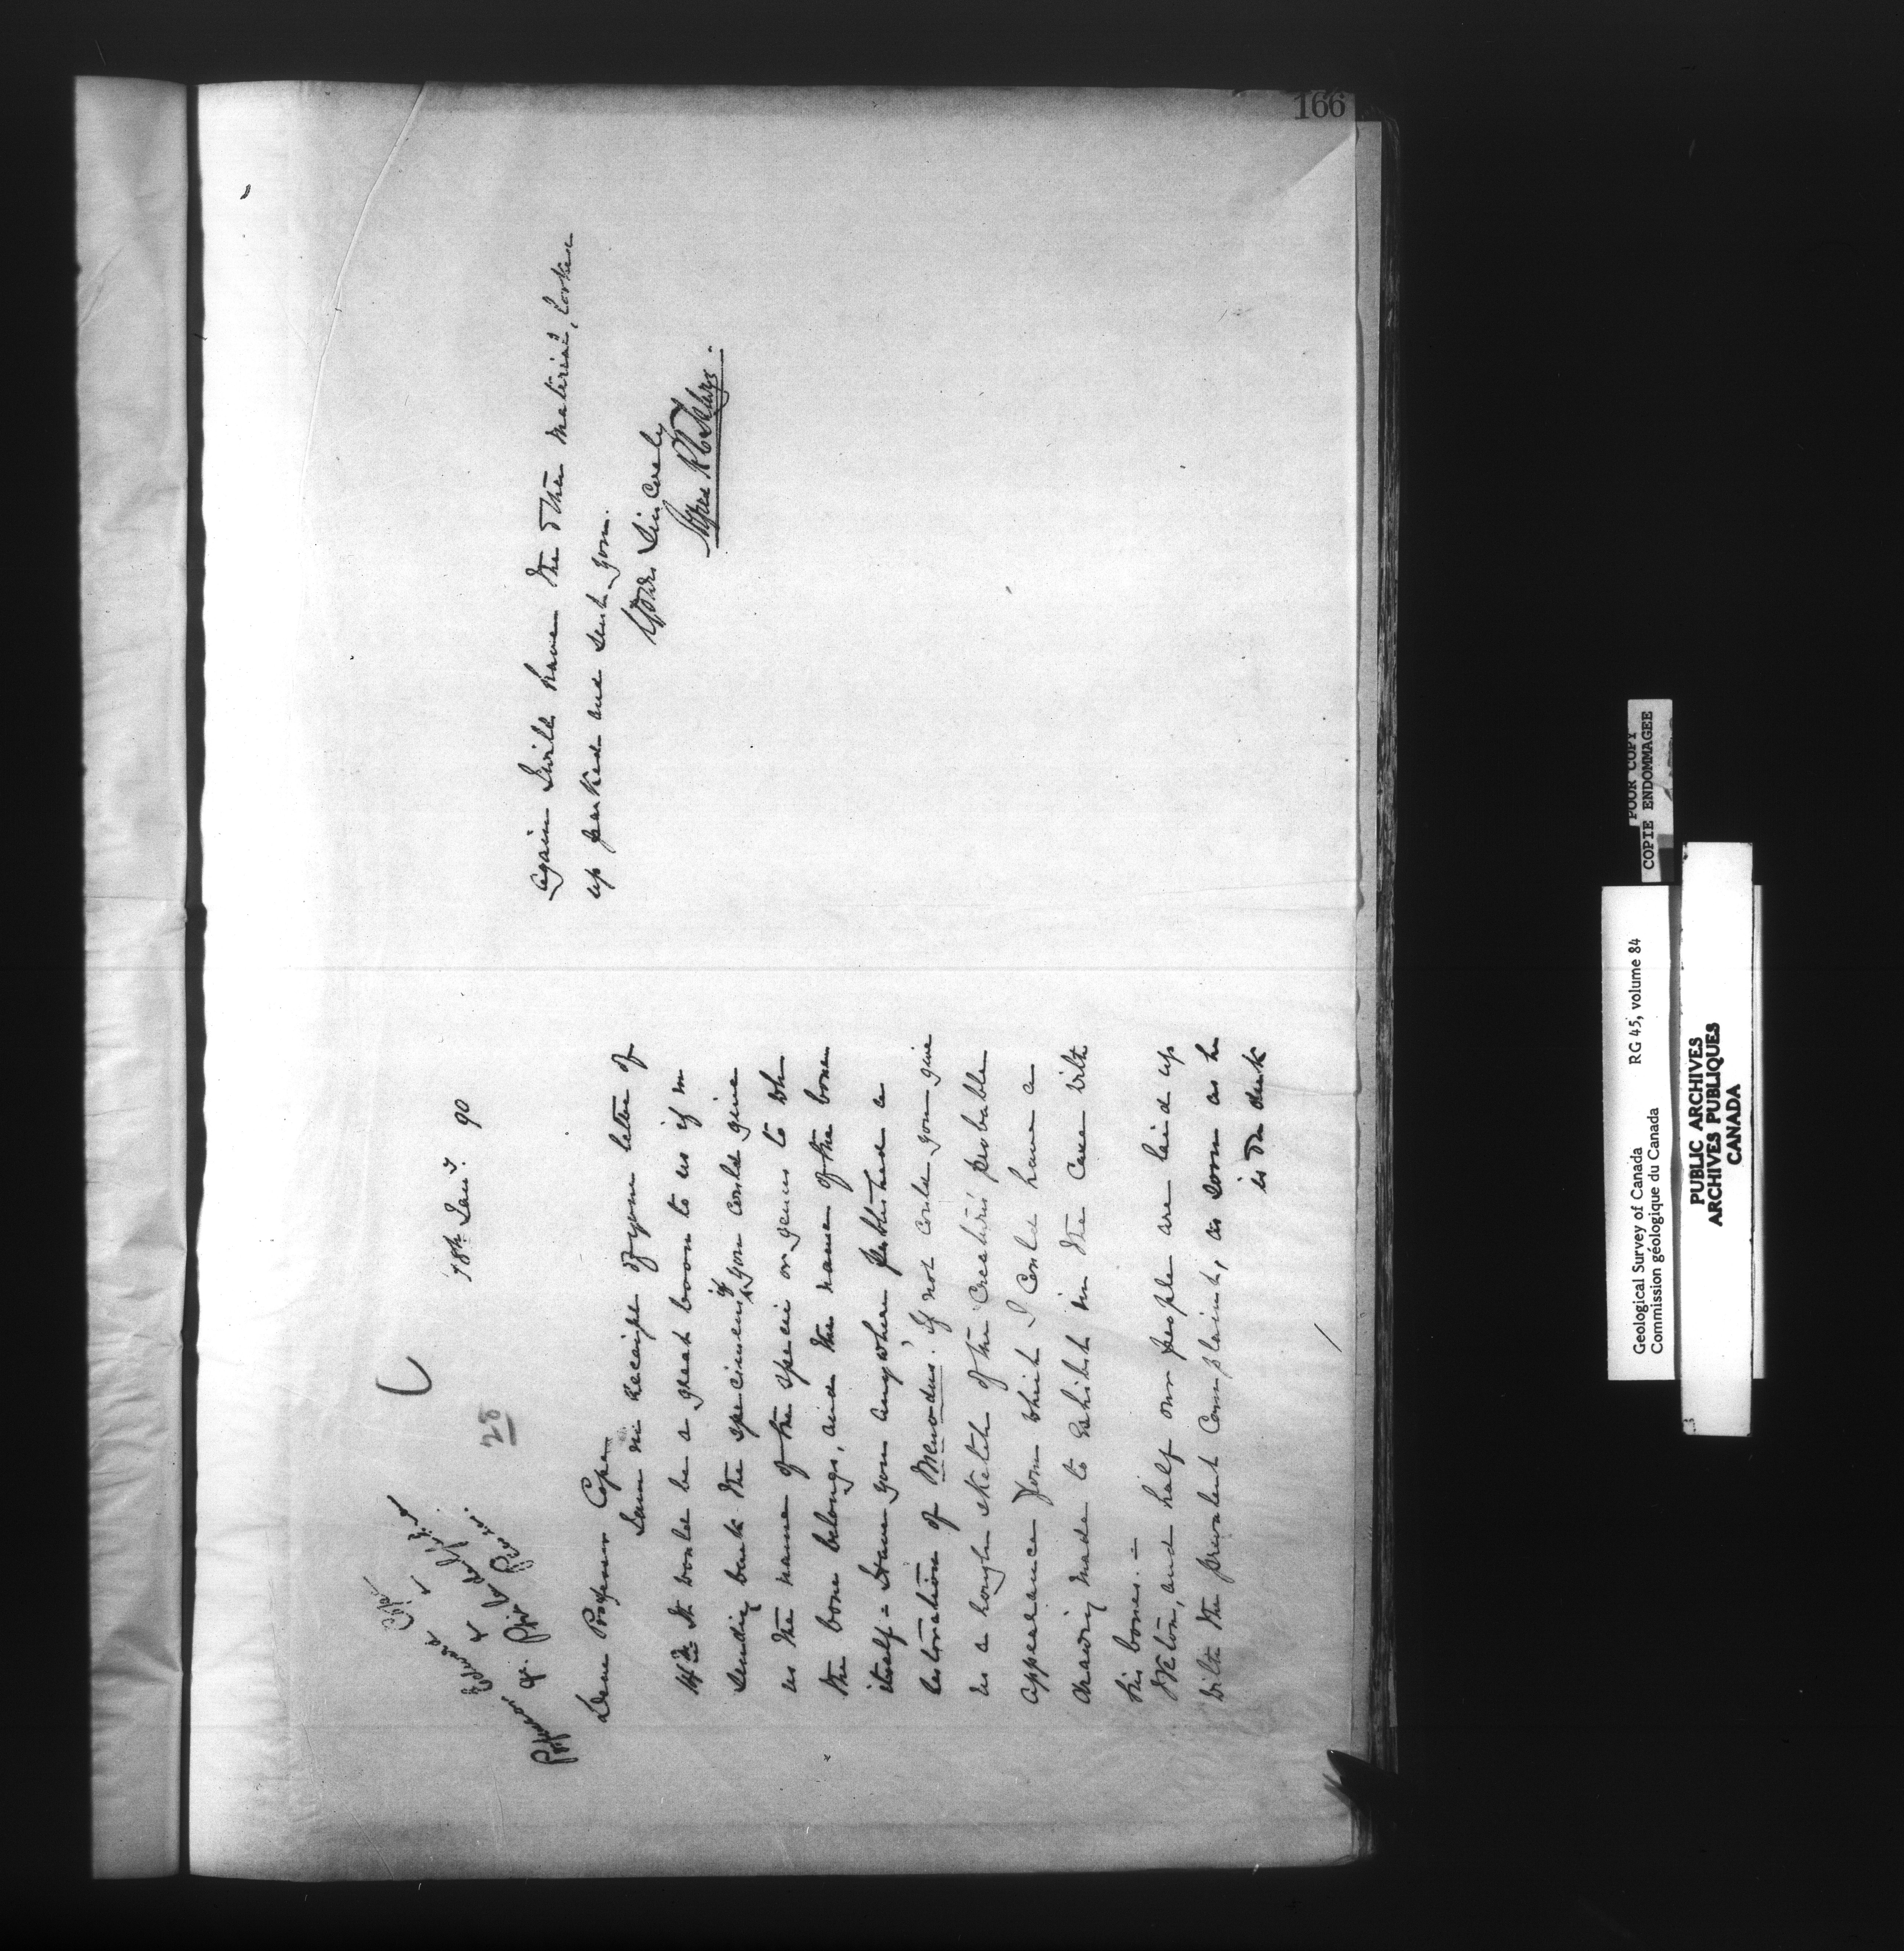 166
18th Jany. 90
28
Dear Professor Cope
I am in receipt of your letter of
14th It would be a great boon to us if in
sending back the specimens if you could give
us the name of the specie or genus to wh
the bone belongs, and the name of the bone
itself - Have you anywhere published a
restoration of Menodus. If not could you give
us a rough sketch of the creatures probable
appearance from which I could have a
drawing made to exhibit in the case with
his bones. -
Weston, and half our people are laid up
with the prevalent complaint, as soon as he
is on deck
again I will have the other material, looked
up packed and sent you.
Yours Sincerely
Geological Survey of Canada RG 45, volume 84
Commission géologique du Canada
POOR COPY
COPIE ENDOMMAGEE
PUBLIC ARCHIVES
ARCHIVES PUBLIQUES
CANADA